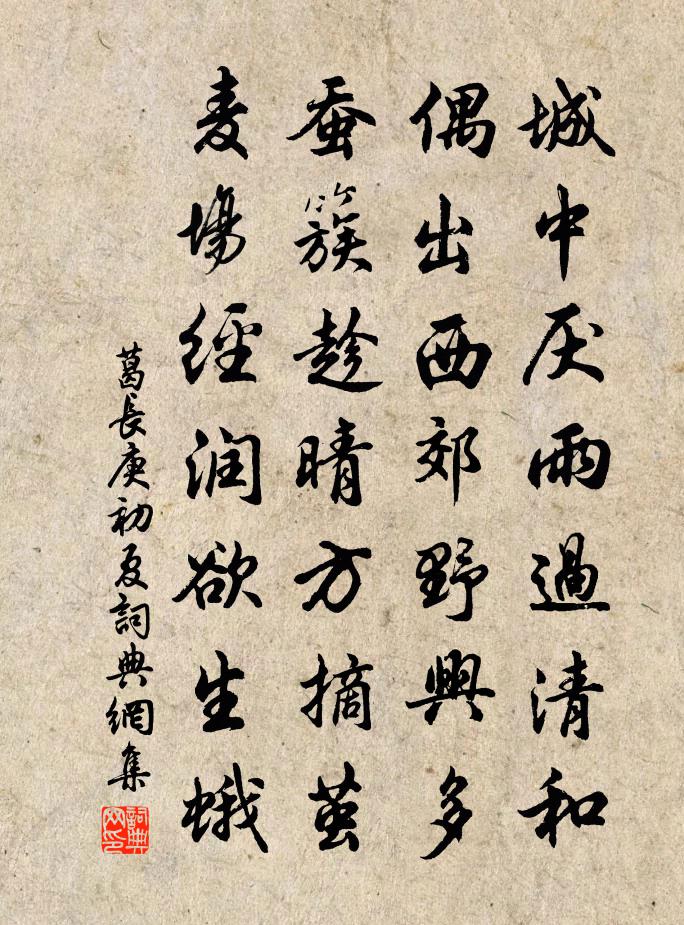 城中厌雨過清和
偶出西郊野興多
蚕簇趁晴方摘茧
麦場經润欲生蛾
葛長庚初夏詞典網集
詞典网印